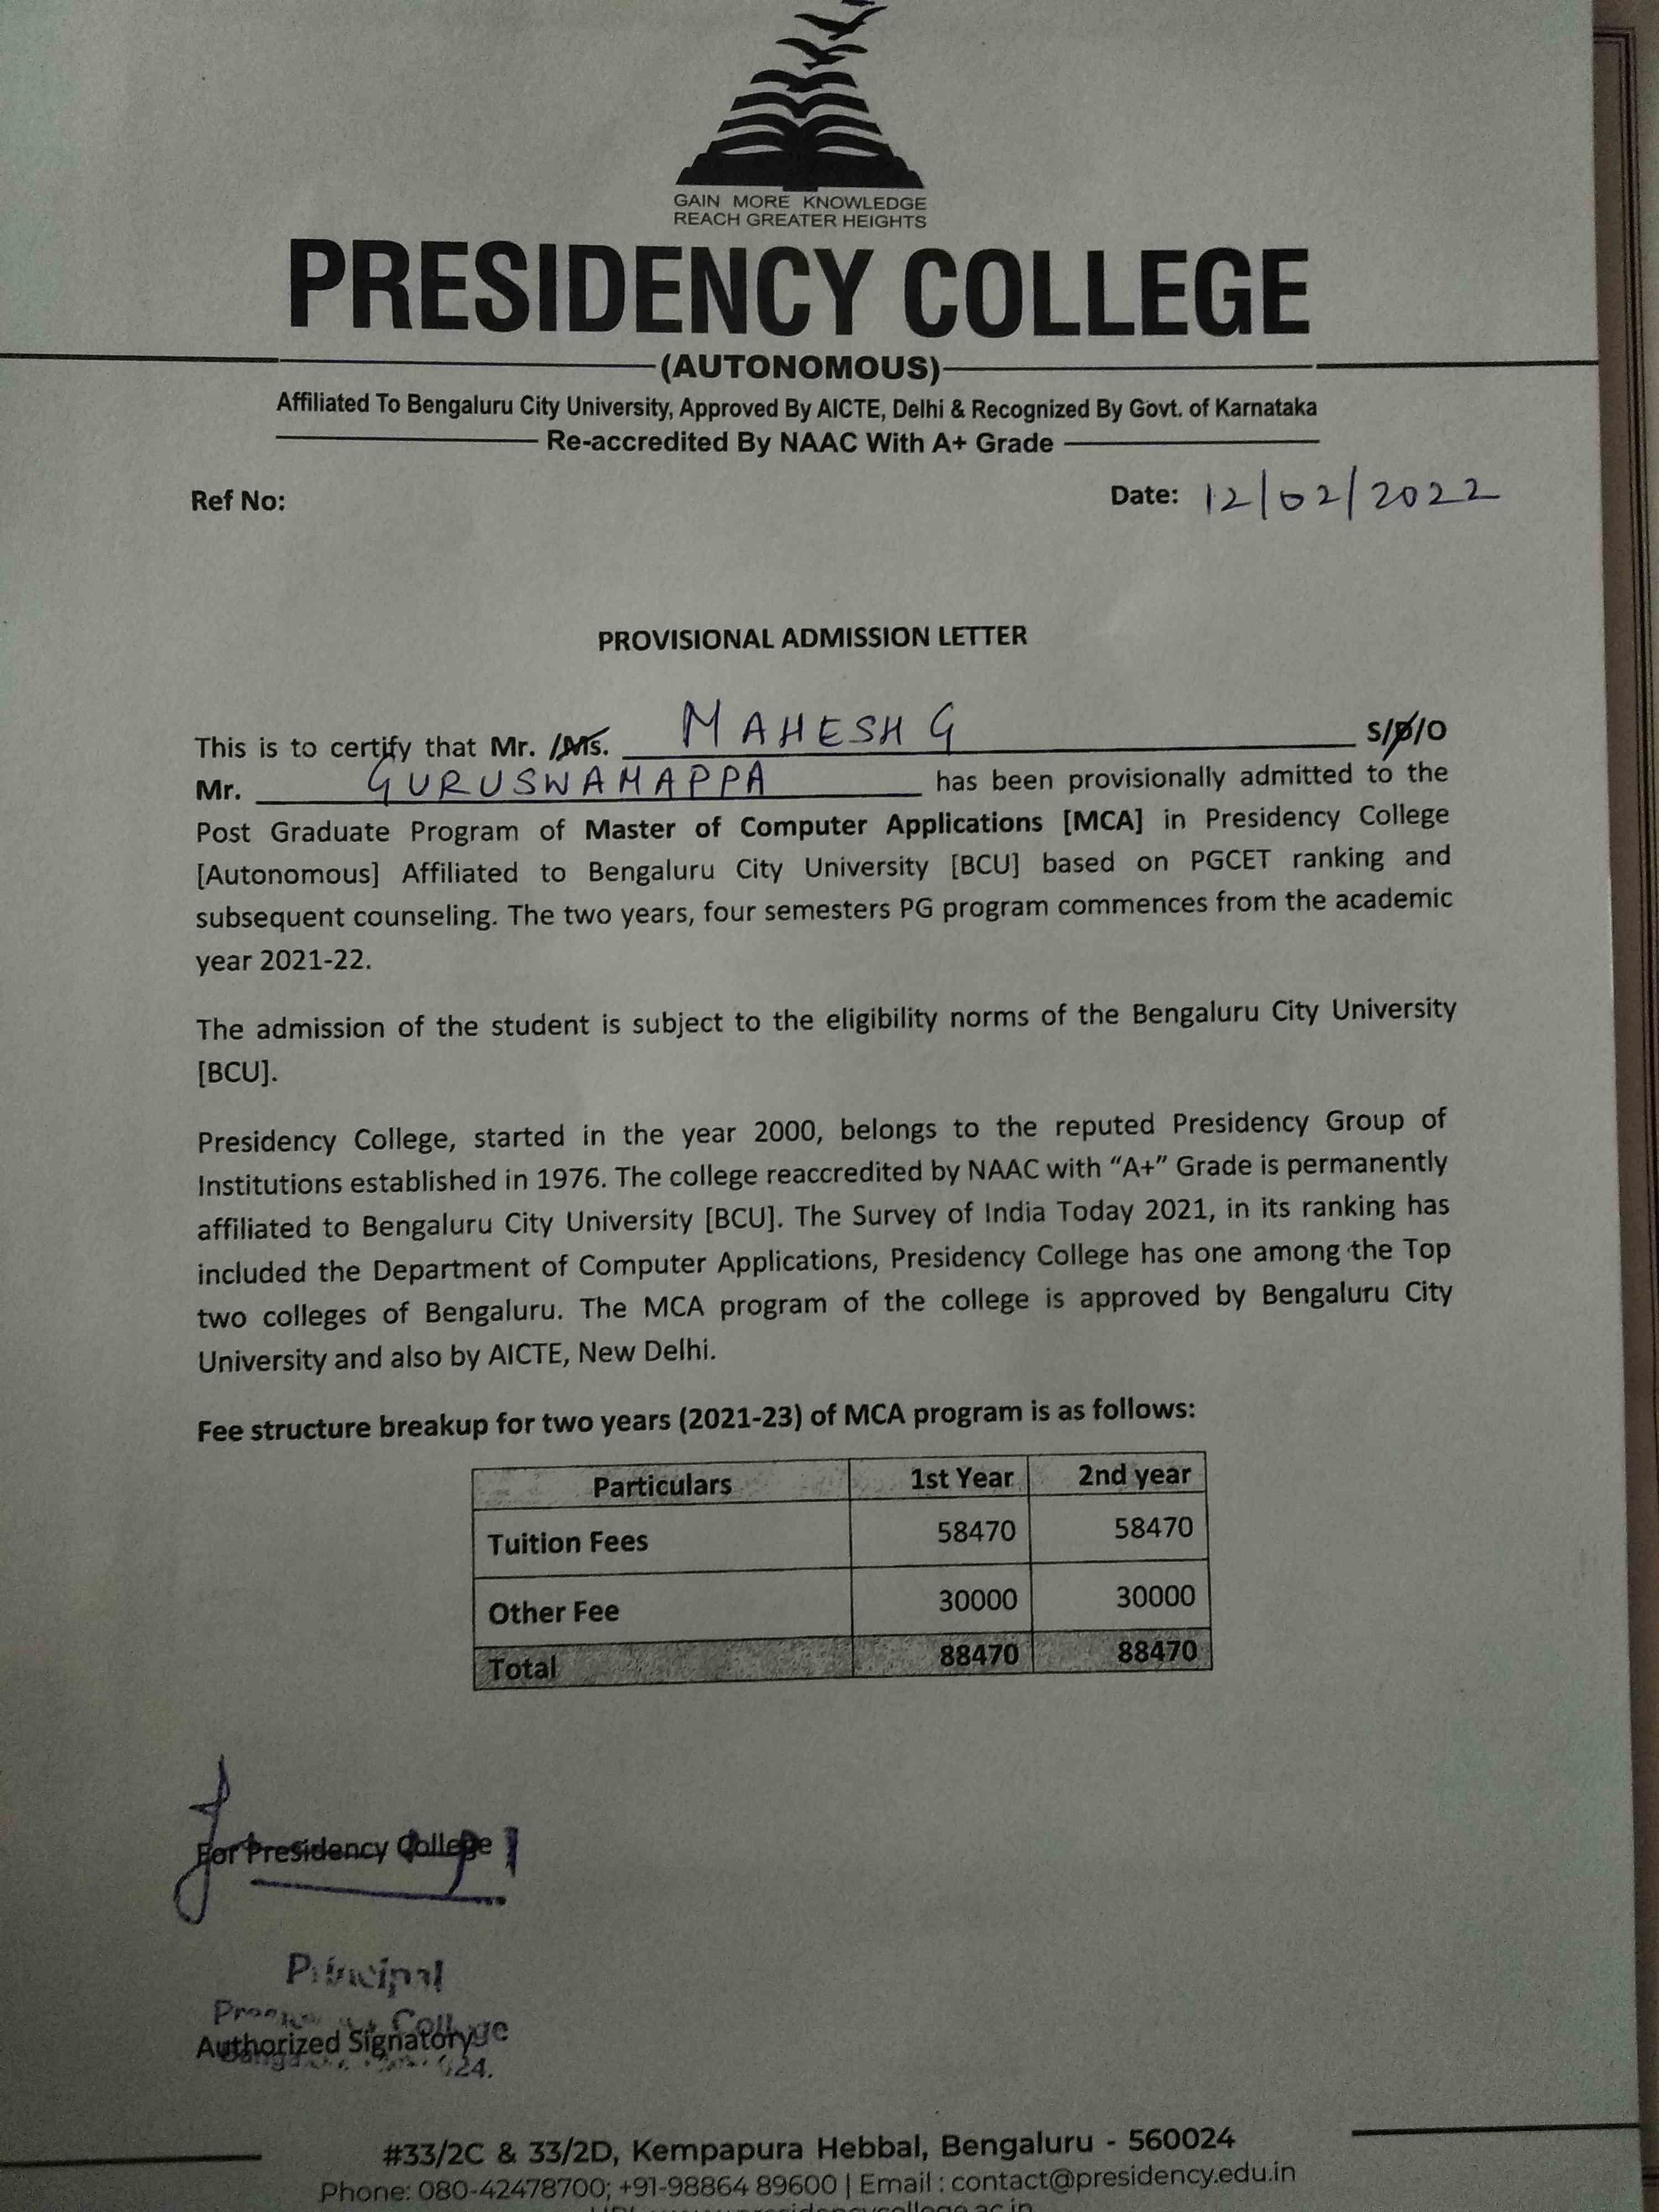 GAIN MORE KNOWLEDGE
REACH GREATER HEIGHTS
PRESIDENCY COLLEGE
(AUTONOMOUS)
Affiliated To Bengaluru City University, Approved By AICTE, Delhi & Recognized By Govt. of Karnataka
Re-accredited By NAAC With A+ Grade
Ref No: Date: 12/02/2022
PROVISIONAL ADMISSION LETTER
This is to certify that Mr. /Ms. MAHESH G S/D/O
Mr. GURUSWAMAPPA has been provisionally admitted to the
Post Graduate Program of Master of Computer Applications [MCA] in Presidency College
[Autonomous] Affiliated to Bengaluru City University [BCU] based on PGCET ranking and
subsequent counseling. The two years, four semesters PG program commences from the academic
year 2021-22.
The admission of the student is subject to the eligibility norms of the Bengaluru City University
[BCU].
Presidency College, started in the year 2000, belongs to the reputed Presidency Group of
Institutions established in 1976. The college reaccredited by NAAC with “A+” Grade is permanently
affiliated to Bengaluru City University [BCU]. The Survey of India Today 2021, in its ranking has
included the Department of Computer Applications, Presidency College has one among the Top
two colleges of Bengaluru. The MCA program of the college is approved by Bengaluru City
University and also by AICTE, New Delhi.
Fee structure breakup for two years (2021-23) of MCA program is as follows:
Particulars 1st Year 2nd year
Tuition Fees 58470 58470
Other Fee 30000 30000
Total 88470 88470
For Presidency College
Principal
College
Authorized Signatory
#33/2C & 33/2D, Kempapura Hebbal, Bengaluru - 560024
Phone: 080-42478700; +91-98864 89600 | Email : contact@presidency.edu.in